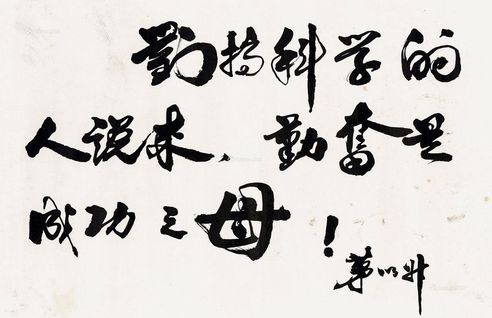 對搞科学的
人说来，勤奮是
成功之母！
茅以升